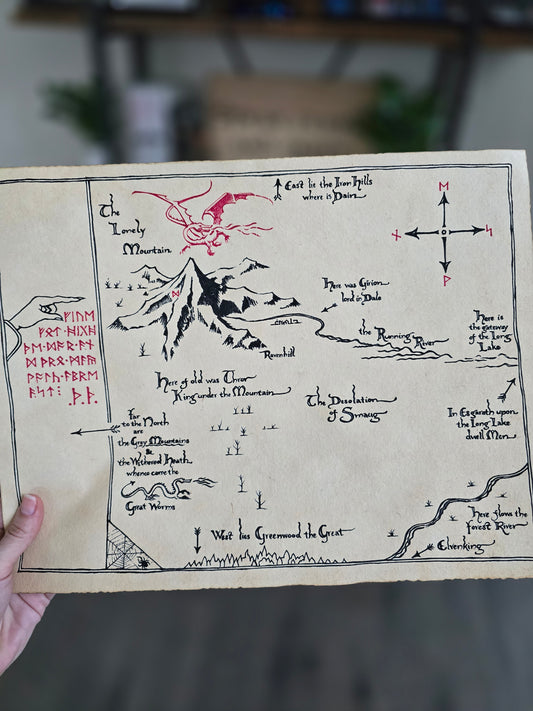 East lie the Iron Hills
where is Dain
The
Lonely
Mountain
ᛖ
ᚾ
ᛋ
ᚹ
ᛞ
Here was Girion
lord in Dale
the Running
River
Here is
the gateway
of the Long
Lake
Ravenhill
ᚠᛁᚢᛖ
ᚠᛟᛏ·ᚻᛁᚷᚻ
ᚦᛖ·ᛞᚩᚱ·ᚪᚾ
ᛞ·ᚦᚱᛟ·ᛗᚪᚣ
ᚹᚪᛚᚳ·ᚪᛒᚱᛖ
ᚪᛋᛏ: ᚦ·ᚦ·
Here of old was Thror
King under the Mountain
The Desolation
of Smaug
In Esgaroth upon
the Long Lake
dwell Men
Far
to the North
are
the Grey Mountains
&
the Withered Heath
whence came the
Great Worms
West lies Greenwood the Great
Here flows the
Forest River
Elvenking